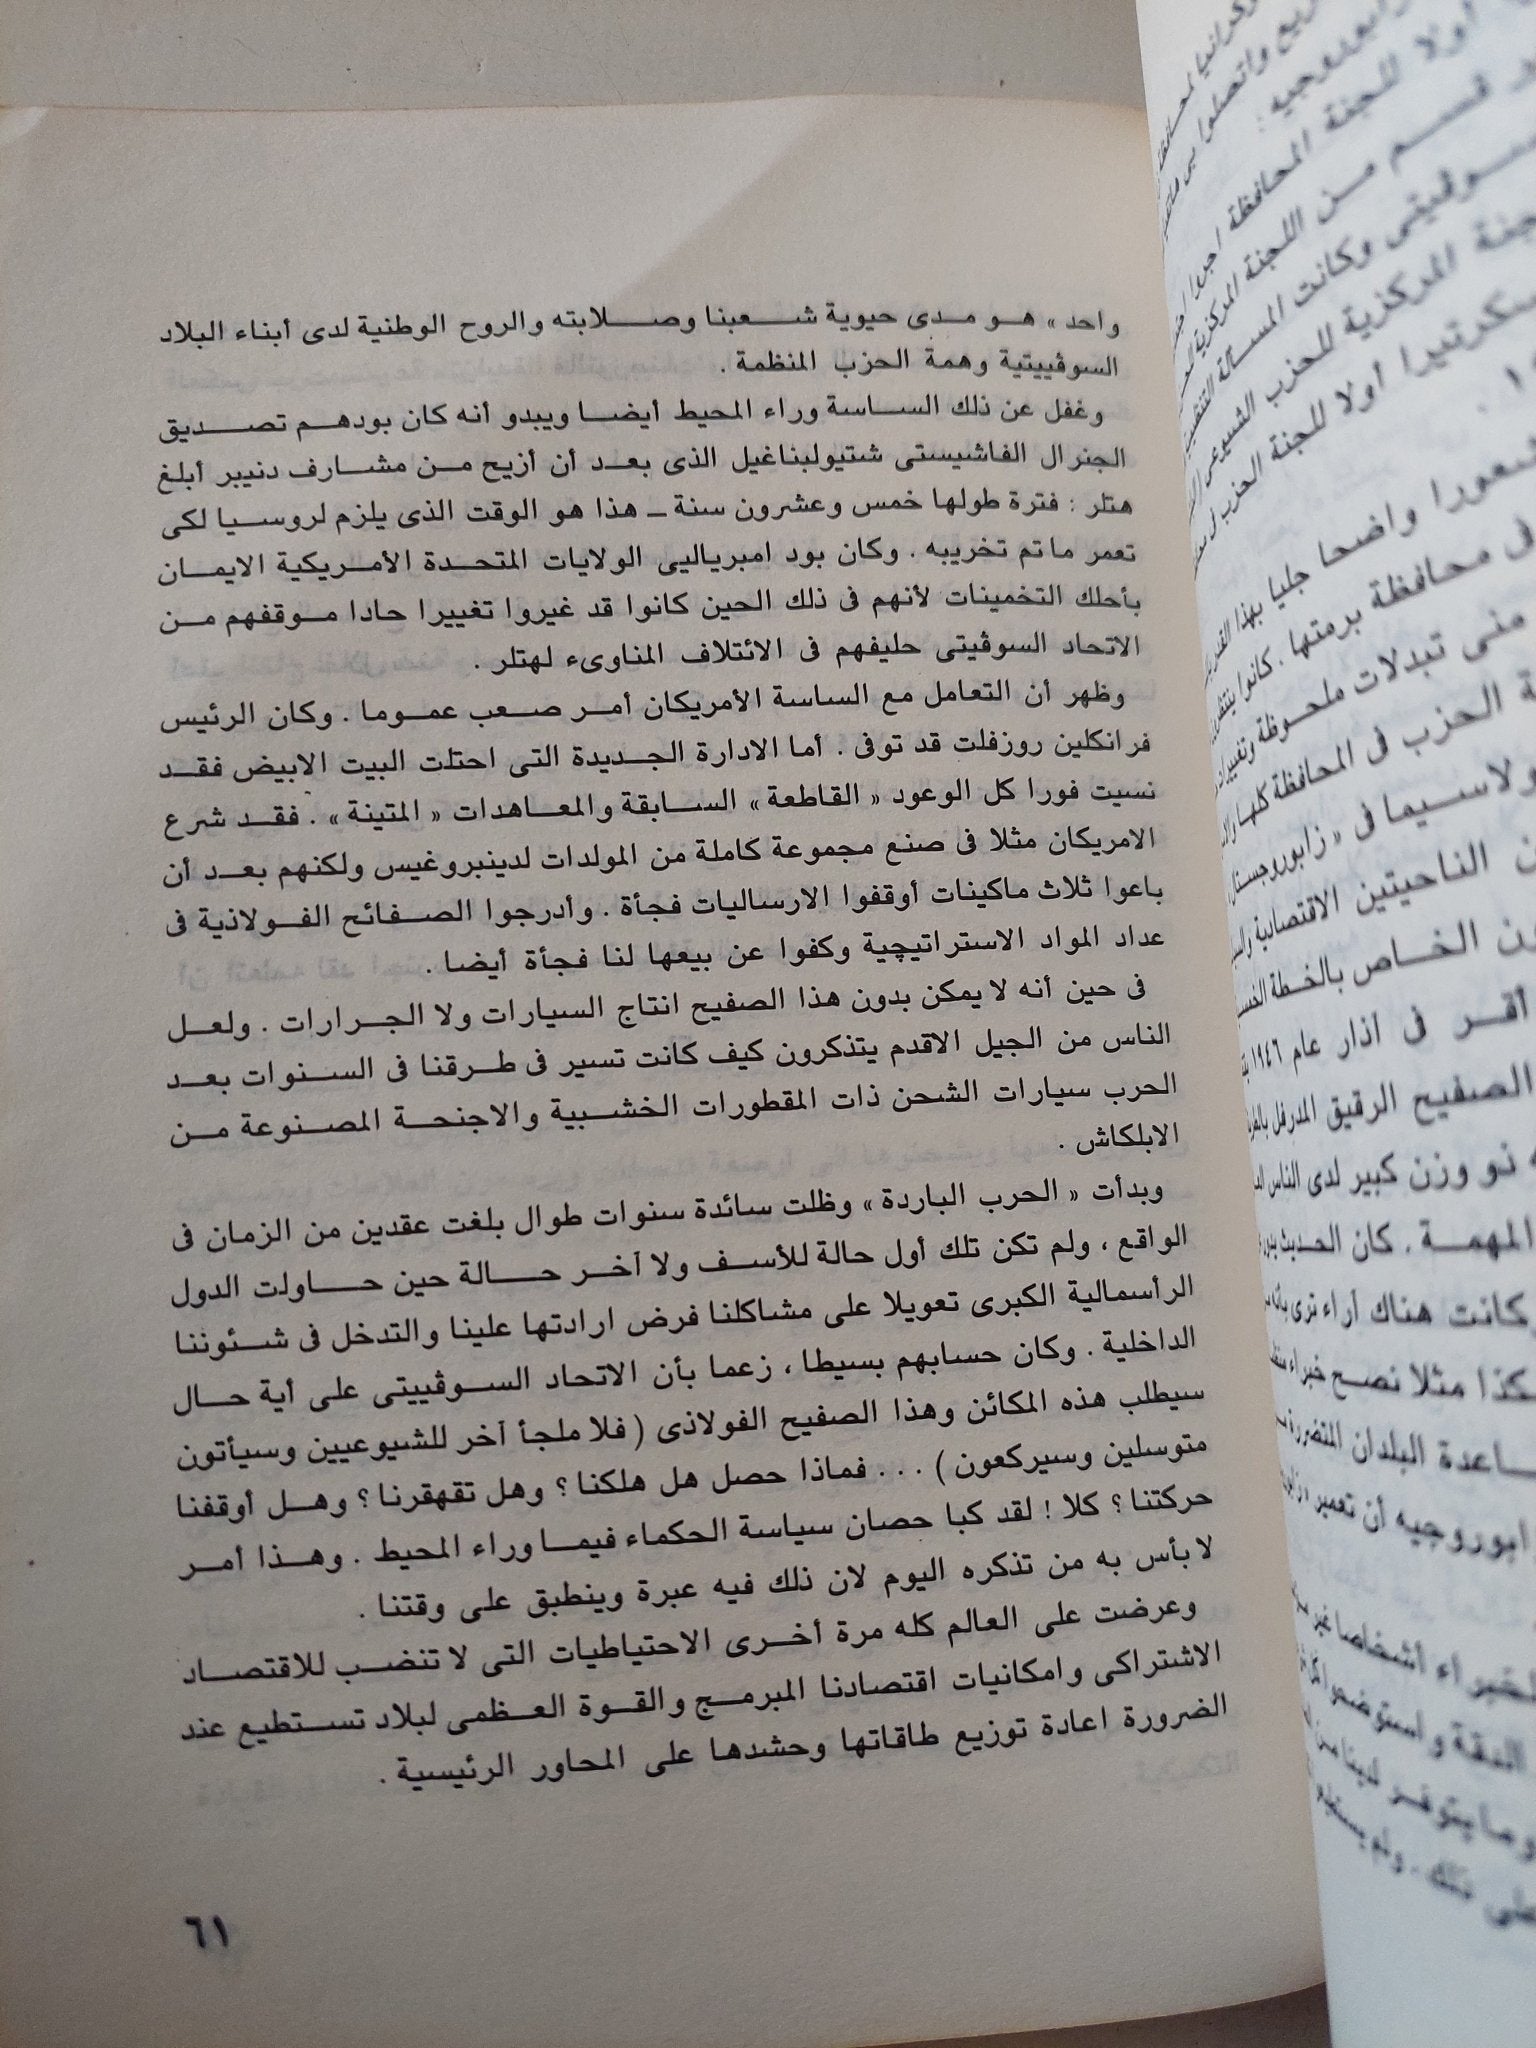 واحد » هو مدى حيوية شعبنا وصلابته والروح الوطنية لدى أبناء البلاد
السوڤييتية وهمة الحزب المنظمة .
وغفل عن ذلك الساسة وراء المحيط أيضا ويبدو أنه كان بودهم تصديق
الجنرال الفاشيستى شتيولبناغيل الذى بعد أن أزيح من مشارف دنيبر أبلغ
هتلر : فترة طولها خمس وعشرون سنة ــ هذا هو الوقت الذى يلزم لروسيا لكى
تعمر ما تم تخريبه . وكان بود امبرياليى الولايات المتحدة الأمريكية الايمان
بأحلك التخمينات لأنهم فى ذلك الحين كانوا قد غيروا تغييرا حادا موقفهم من
الاتحاد السوڤيتى حليفهم فى الائتلاف المناوىء لهتلر .
وظهر أن التعامل مع الساسة الأمريكان أمر صعب عموما . وكان الرئيس
فرانكلين روزفلت قد توفى . أما الادارة الجديدة التى احتلت البيت الابيض فقد
نسيت فورا كل الوعود « القاطعة » السابقة والمعاهدات « المتينة » . فقد شرع
الامريكان مثلا فى صنع مجموعة كاملة من المولدات لدينبروغيس ولكنهم بعد أن
باعوا ثلاث ماكينات أوقفوا الارساليات فجأة . وأدرجوا الصفائح الفولاذية فى
عداد المواد الاستراتيچية وكفوا عن بيعها لنا فجأة أيضا .
فى حين أنه لا يمكن بدون هذا الصفيح انتاج السيارات ولا الجرارات . ولعل
الناس من الجيل الاقدم يتذكرون كيف كانت تسير فى طرقنا فى السنوات بعد
الحرب سيارات الشحن ذات المقطورات الخشبية والاجنحة المصنوعة من
الابلكاش .
وبدأت « الحرب الباردة » وظلت سائدة سنوات طوال بلغت عقدين من الزمان فى
الواقع ، ولم تكن تلك أول حالة للأسف ولا آخر حالة حين حاولت الدول
الرأسمالية الكبرى تعويلا على مشاكلنا فرض ارادتها علينا والتدخل فى شئوننا
الداخلية . وكان حسابهم بسيطا ، زعما بأن الاتحاد السوڤييتى على أية حال
سيطلب هذه المكائن وهذا الصفيح الفولاذى ( فلا ملجأ آخر للشيوعيين وسيأتون
متوسلين وسيركعون ) ... فماذا حصل هل هلكنا ؟ وهل تقهقرنا ؟ وهل أوقفنا
حركتنا ؟ كلا ! لقد كبا حصان سياسة الحكماء فيما وراء المحيط . وهذا أمر
لا بأس به من تذكره اليوم لان ذلك فيه عبرة وينطبق على وقتنا .
وعرضت على العالم كله مرة أخرى الاحتياطيات التى لا تنضب للاقتصاد
الاشتراكى وامكانيات اقتصادنا المبرمج والقوة العظمى لبلاد تستطيع عند
الضرورة اعادة توزيع طاقاتها وحشدها على المحاور الرئيسية .
٦١
أولا للجنة المحافظة
قسم من اللجنة المركزية
وكانت المسألة
المركزية للحزب الشيوعى
سكرتيرا أولا للجنة الحزب
شعورا واضحا جليا بهذا
فى محافظة برمتها . كانوا
منى تبدلات ملحوظة
الحزب فى المحافظة كلها
ولاسيما فى « زابوروجستال
الناحيتين الاقتصادية
الخاص بالخطة
أقر فى آذار عام ١٩٤٦
الصفيح الرقيق المدرفل
نو وزن كبير لدى الناس
المهمة . كان الحديث
كانت هناك آراء ترى بأنه
كذا مثلا نصح خبراء
البلدان المتضررة
أن تعمير
أشخاصا غير